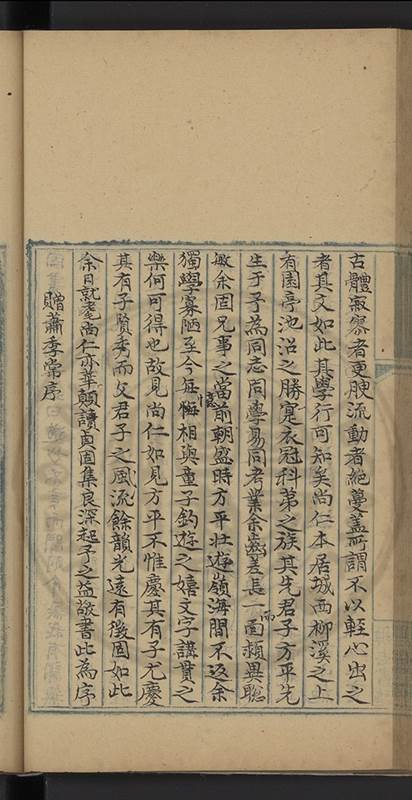 古體寂寥者更腴流動者絕蔓蓋所謂不以輕心出之
者其文如此其學行可知矣尚仁本居城西柳溪之上
有園亭池沼之勝寔衣冠科第之族其先君子方平先
生于予為同志同學易同考業余齒差長一而穎異聰
敏余固兄事之當前朝盛時方平壯遊嶺海間不返余
獨學寡陋至今每憶相與童子釣遊之嬉文字講貫之
樂何可得也故見尚仁如見方平不惟慶其有子尤慶
其有子賢秀而父君子之風流餘韻光遠有徵固如此
余日就耄尚仁亦華顛讀固集良深起予之益敬書此為序
贈蕭季常序